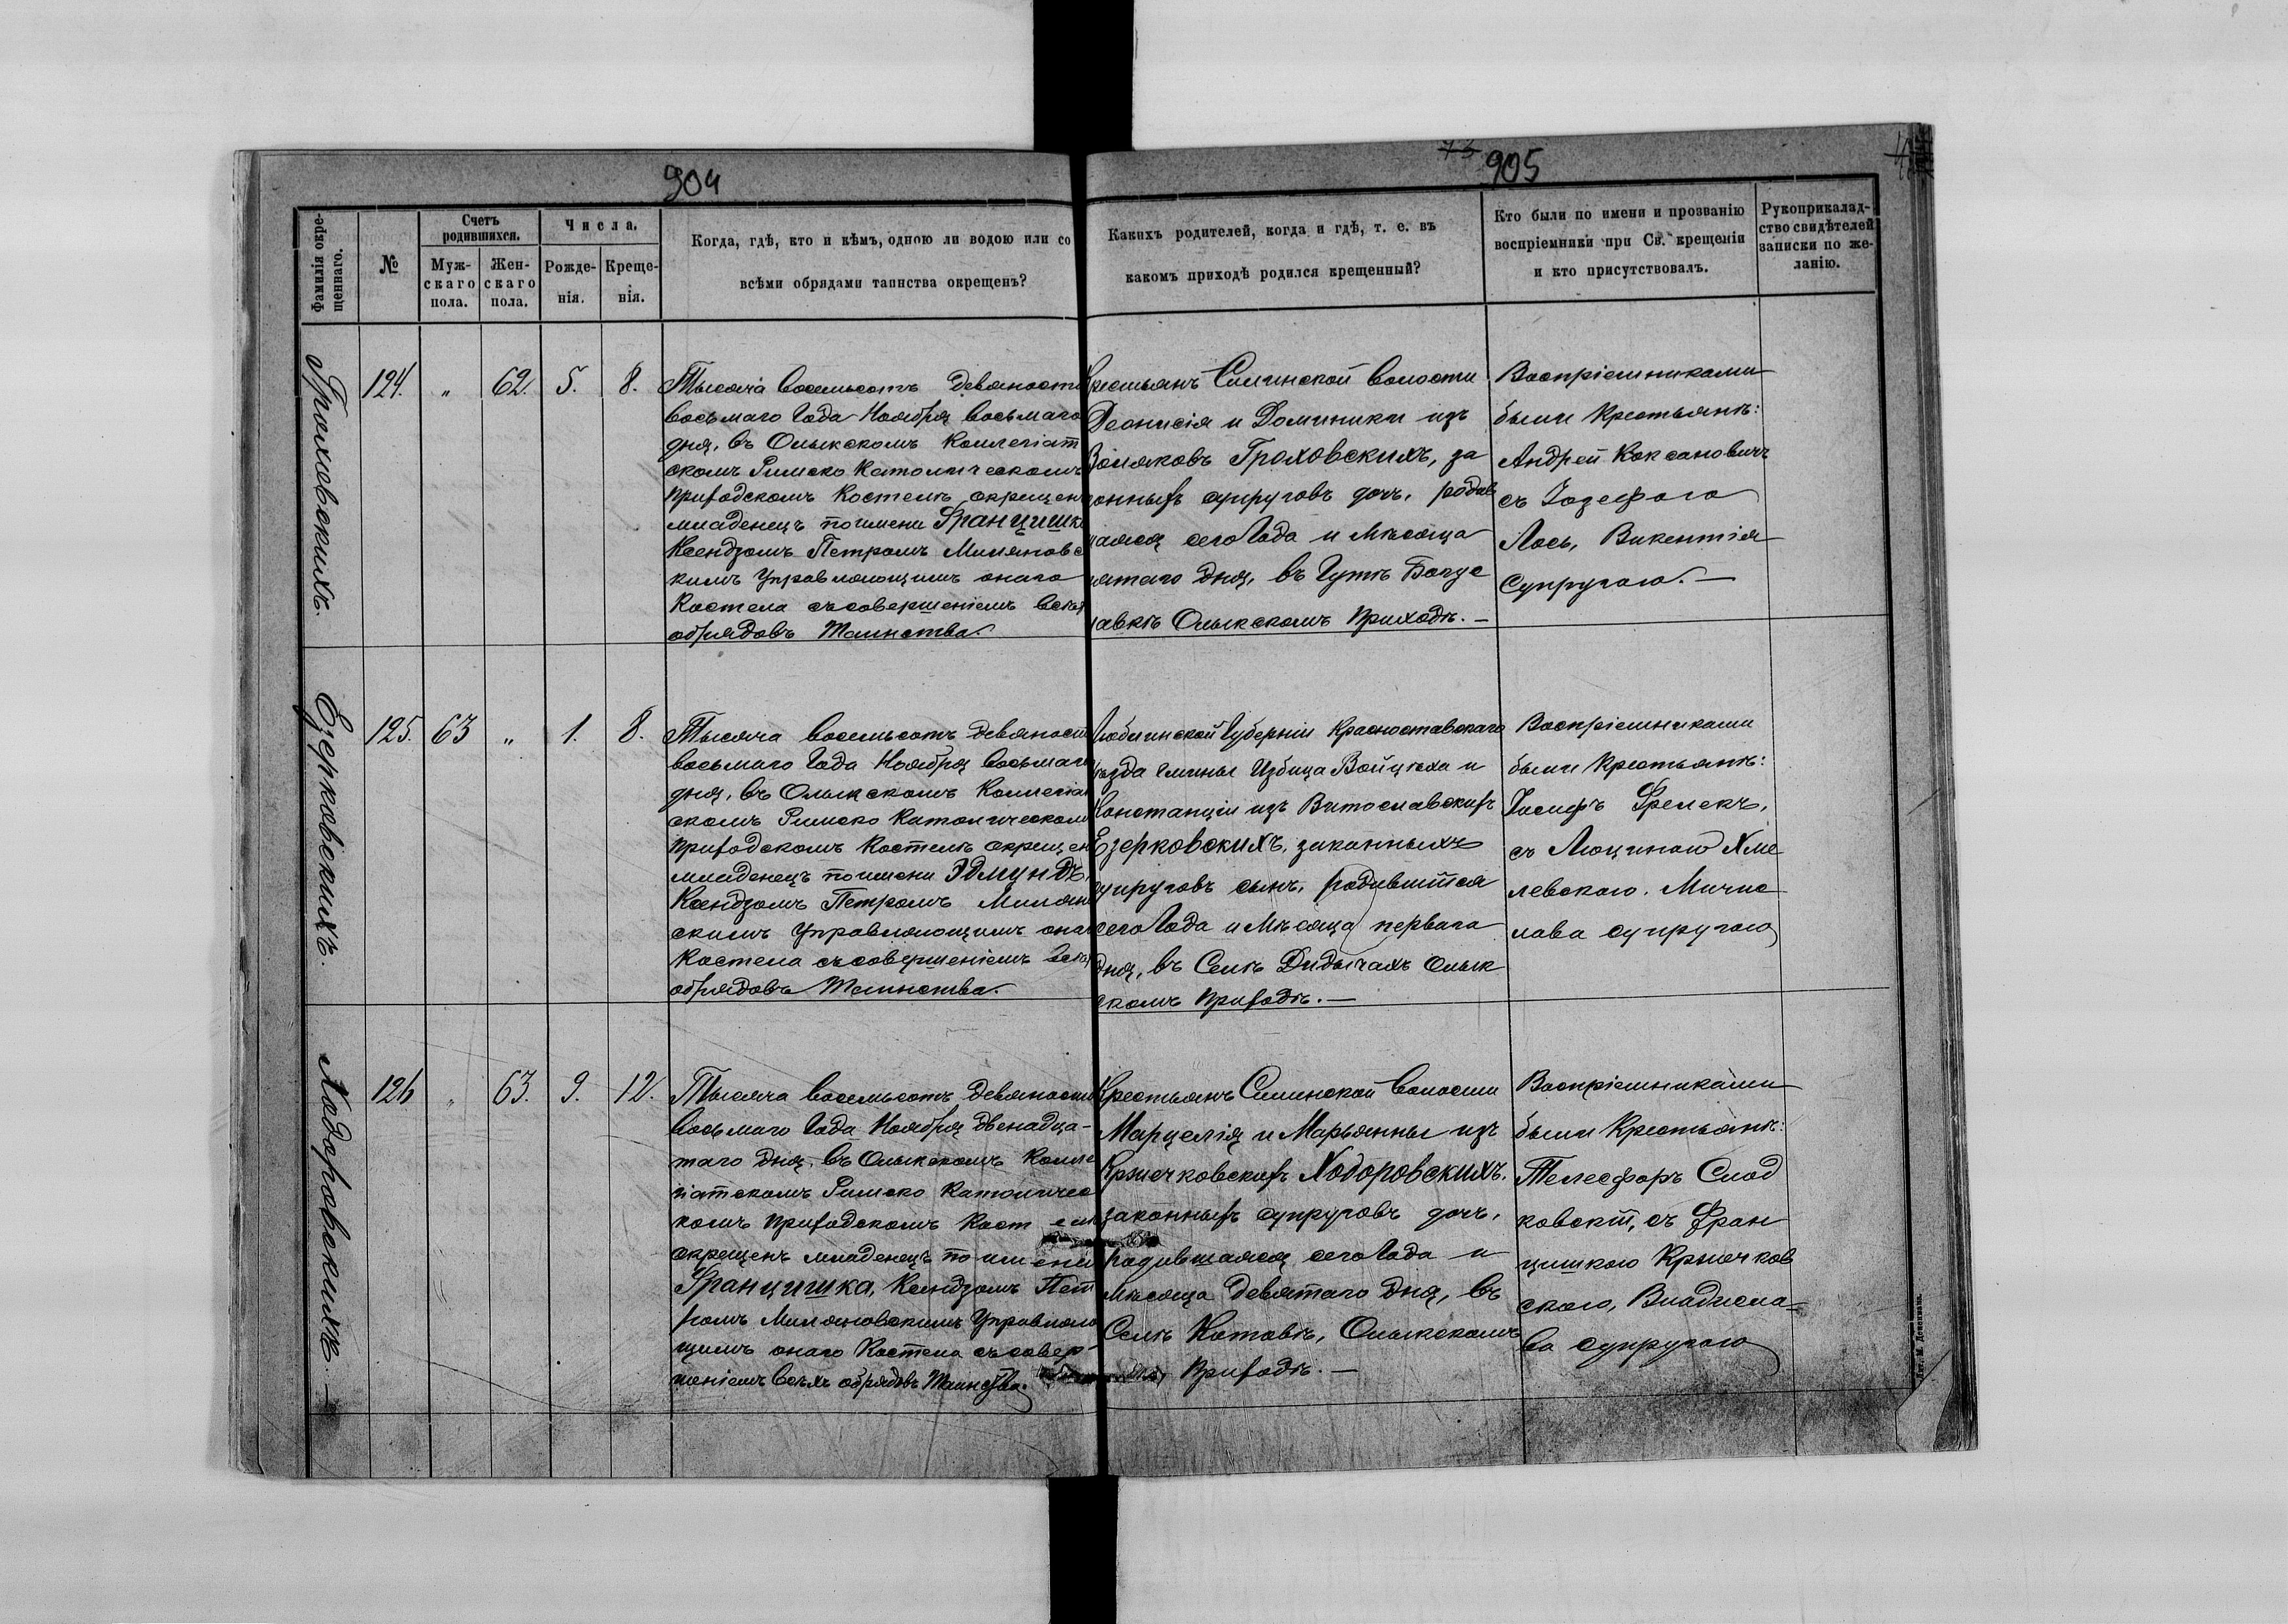 904
73 905
Фамилія окре-
щеннаго.
№
Счетъ
родившихся.
Муж-
скаго
пола.
Жен-
скаго
пола.
Числа.
Рожде-
нія.
Креще-
нія.
Когда, гдѣ, кто и кѣмъ, одною ли водою или со
всѣми обрядами таинства окрещенъ?
Какихъ родителей, когда и гдѣ, т. е. въ
какомъ приходѣ родился крещенный?
Кто были по имени и прозванію
воспріемники при Св. крещеніи
и кто присутствовалъ.
Рукоприкалад-
ство свидѣтелей
записки по же-
ланію.
Гроховскихъ.
124. „ 62. 5. 8.
Тысяча восемьсотъ девяносто
восьмаго Года Ноября восьмаго
дня, въ Олыкскомъ Коллегіат
скомъ Римско Католическомъ
приходскомъ Костелѣ окрещенъ
младенецъ по имени Францишка
Ксендзомъ Петромъ Миляновс
кимъ Управляющимъ онаго
Костела съ совершеніемъ всѣхъ
обрядовъ Таинства.
Крестьянъ Силинской волости
Діонисія и Доминики изъ
Воляковъ Гроховскихъ, за
конныхъ супруговъ дочь, родив
шаяся сего Года и Мѣсяца
пятаго дня, въ Гутѣ Богус
лавкѣ Олыкскомъ Приходѣ. —
Воспріемниками
были Крестьянѣ:
Андрей Коксановичъ
съ Іозефою
Лось, Викентія
Супругою. —
Езерковскихъ.
125. 63 „ 1. 8.
Тысяча восемьсотъ девяносто
восьмаго Года Ноября восьмаго
дня, въ Олыкскомъ Коллегіат
скомъ Римско Католическомъ
приходскомъ Костелѣ окрещенъ
младенецъ по имени Эдмундъ,
Ксендзомъ Петромъ Милянов
скимъ Управляющимъ онаго
Костела съ совершеніемъ всѣхъ
обрядовъ Таинства.
Люблинской Губерніи Красноставскаго
уѣзда гмины Избица Войцѣха и
Констанціи изъ Витославскихъ
Езерковскихъ, законныхъ
супруговъ сынъ, родившійся
сего Года и Мѣсяца перваго
дня, въ Селѣ Дидычахъ Олык
скомъ приходѣ. —
Воспріемниками
были Крестьянѣ:
Іосифъ Фрелекъ,
съ Люциною Хме
левскою, Мичис
лава супругою
Ходоровскихъ. —
126 „ 63. 9. 12.
Тысяча восемьсотъ девяносто
восьмаго Года Ноября двенадца-
таго дня, въ Олыкскомъ Колле
гіатскомъ Римско Католичес
комъ приходскомъ Костелѣ
окрещенъ младенецъ по имени
Францишка, Ксендзомъ Пет
ромъ Миляновскимъ Управляю
щимъ онаго Костела съ совер-
шеніемъ всѣхъ обрядовъ Таинства.
Крестьянъ Силинской волости
Марцелія и Марьянны изъ
Кржечковскихъ Ходоровскихъ,
законныхъ супруговъ дочь,
родившаяся сего Года и
Мѣсяца девятаго дня, въ
Селѣ Котовѣ, Олыкскомъ
Приходѣ. —
Воспріемниками
были Крестьянѣ:
Телесфоръ Слод
ковскій, съ Фран
цишкою Кржечков
скою, Владисла-
ва супругою